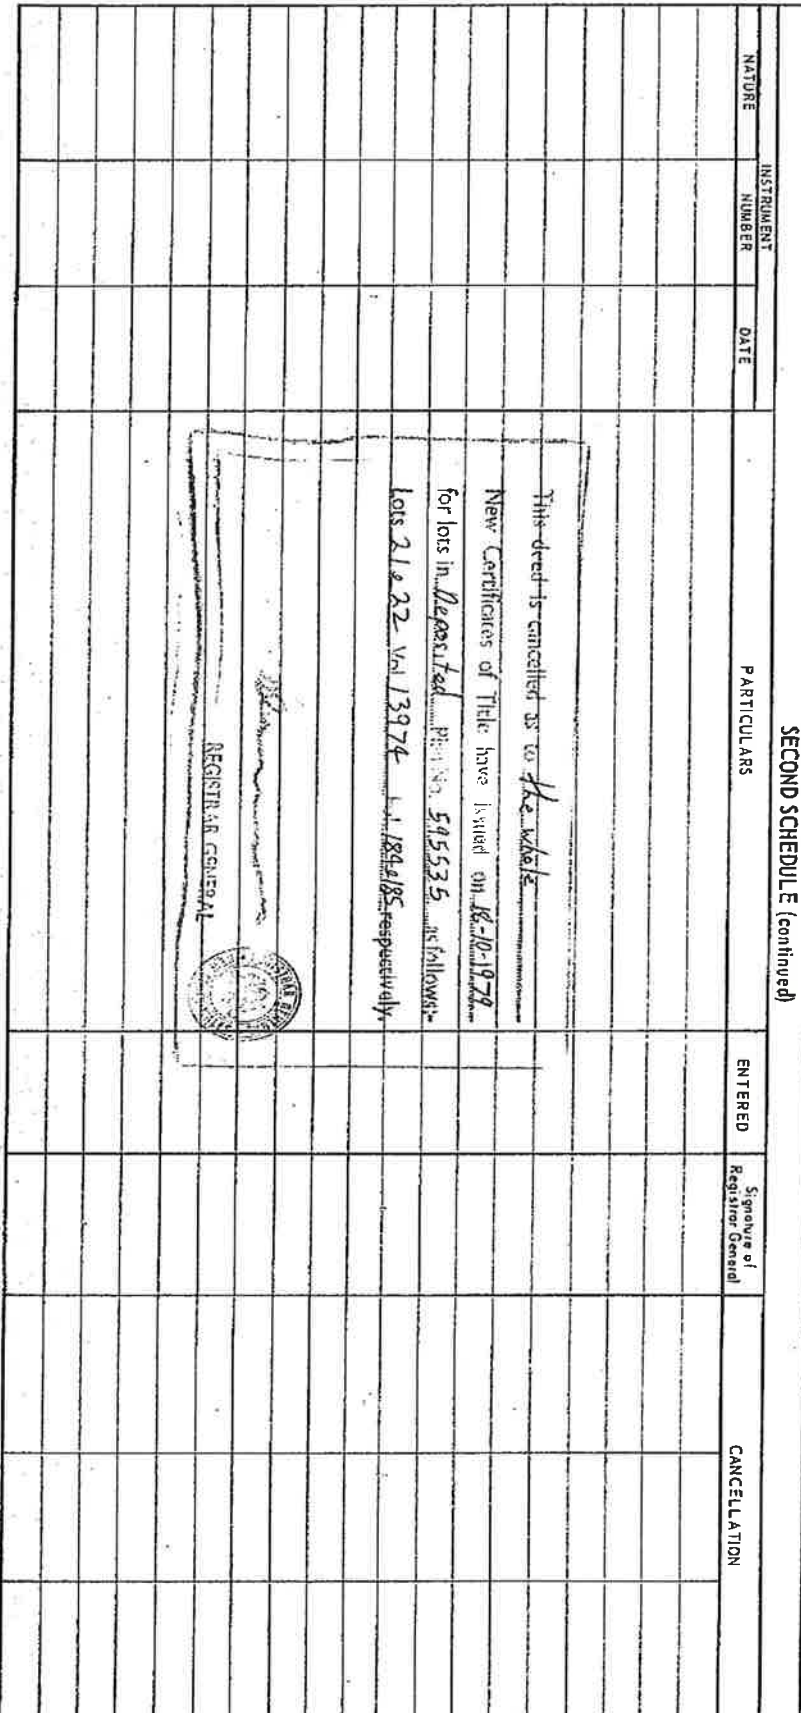 SECOND SCHEDULE (continued)
INSTRUMENT
NATURE NUMBER DATE PARTICULARS ENTERED Signature of Registrar General CANCELLATION
This deed is cancelled as to the whole
New Certificates of Title have issued on 18-10-1979
for lots in Deposited Plan No. 595535 as follows:-
Lots 21 & 22 Vol 13974 Fol 184 & 185 respectively.
REGISTRAR GENERAL